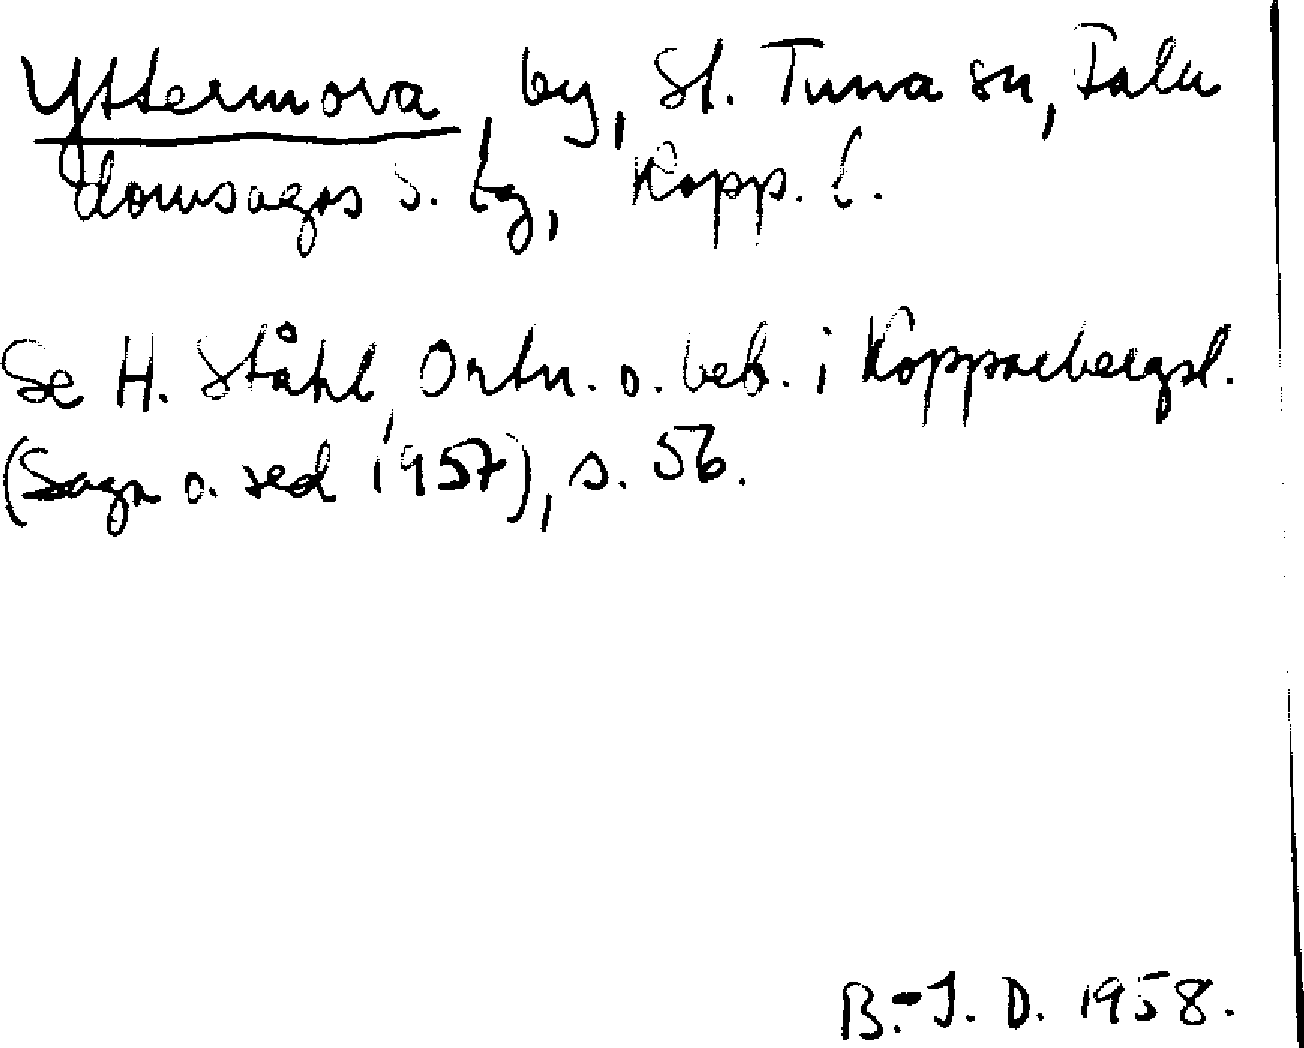 Yttermora, by, St. Tuna sn, Falu
domsagas s. tg, Kopp. l.
Se H. Ståhl, Ortn. o. beb. i Kopparbergsl.
(Sagn o. sed 1957), s. 56.
B.-J. D. 1958.